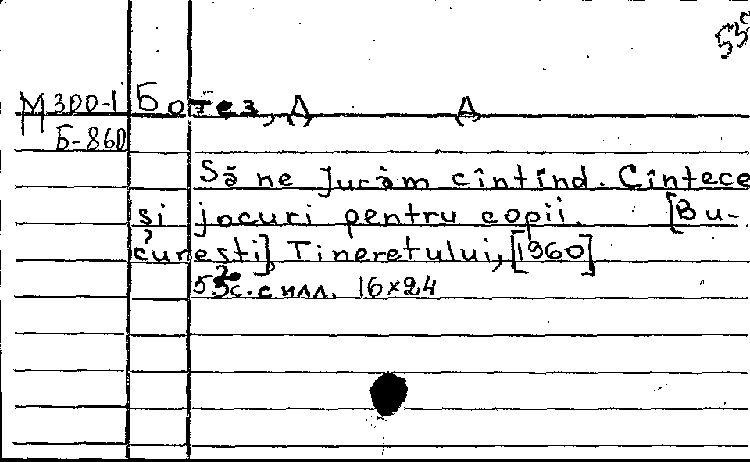 55
М 3РО-1 Ботез, Д Д
Б-860
Să ne jucăm cîntînd. Cîntece
și jocuri pentru copii. [Bu-
curești], Tineretului, [1960]
с. с илл. 16×24